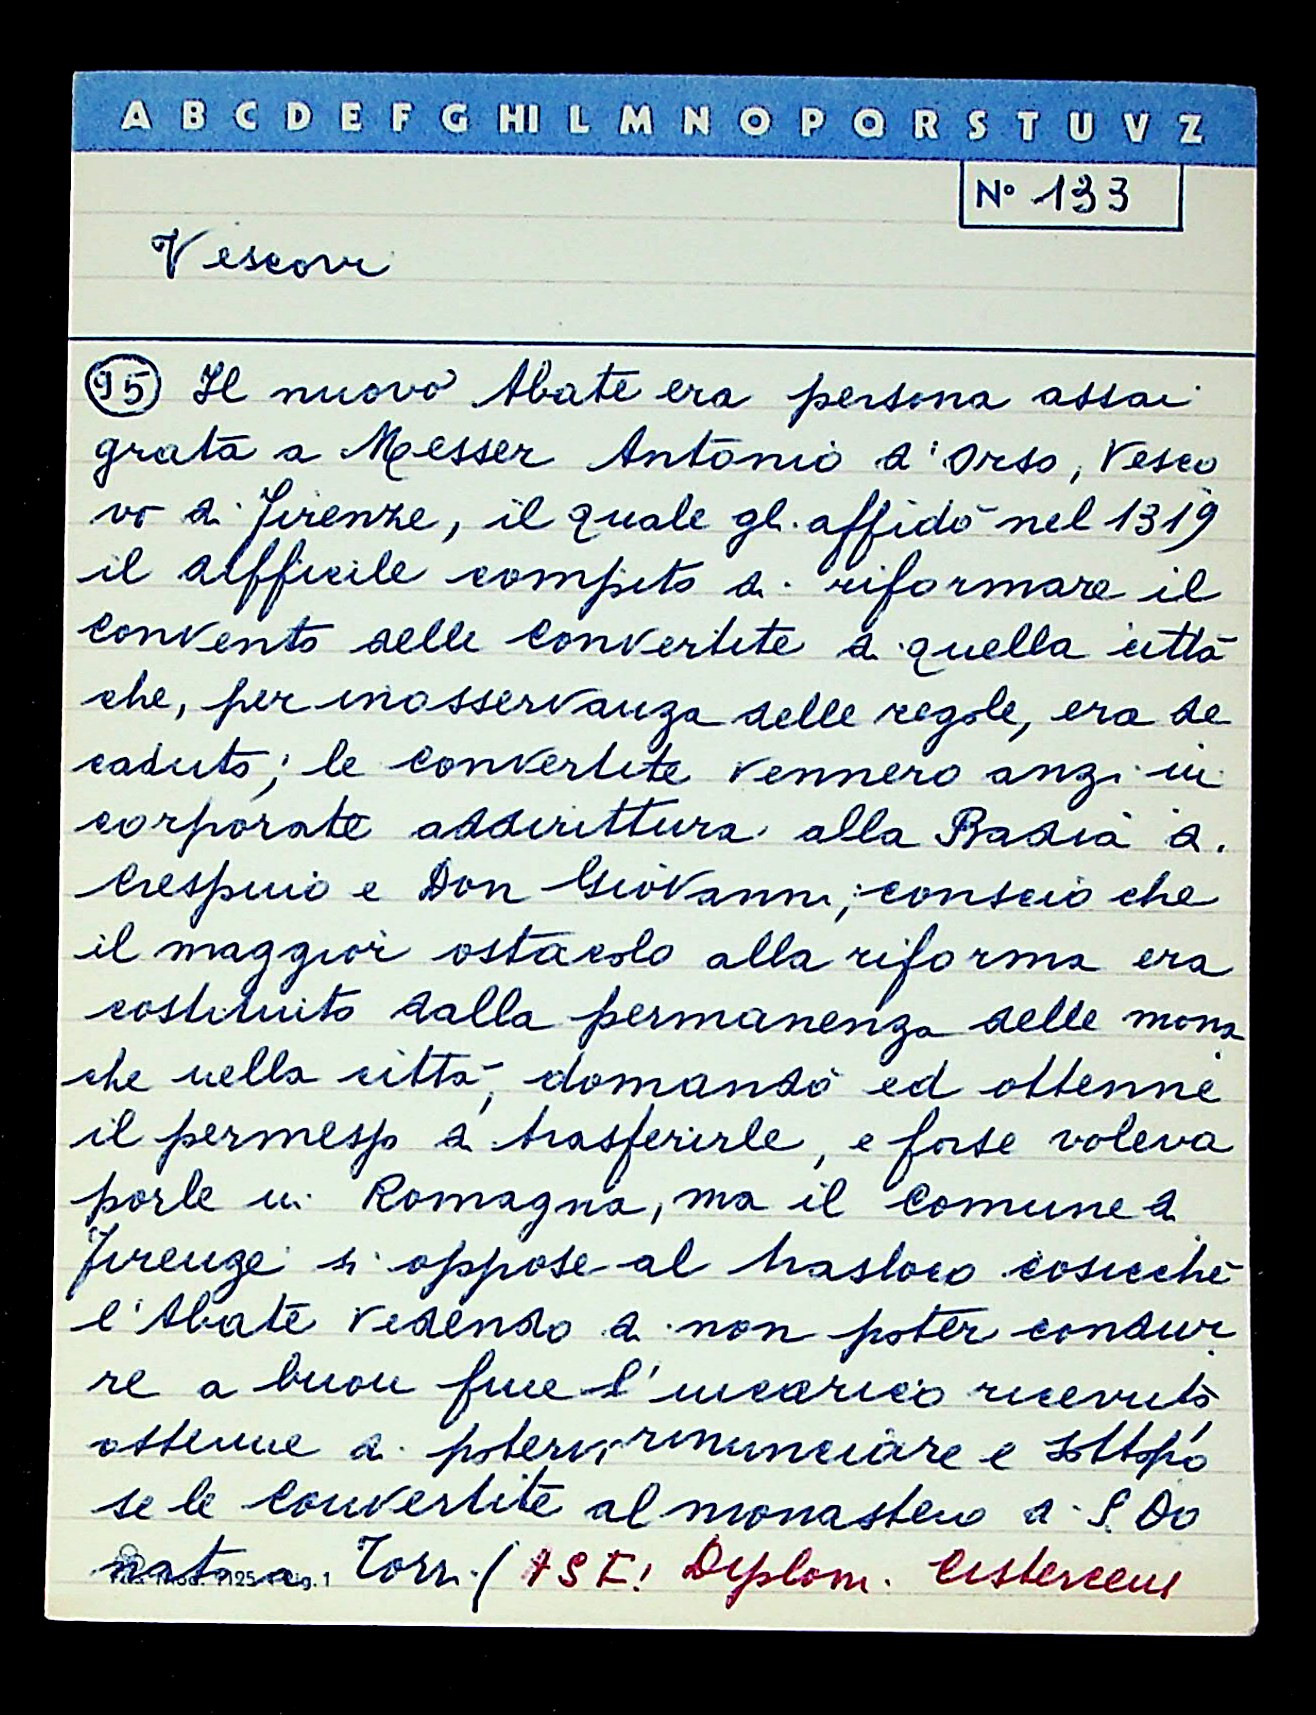 A B C D E F G HI L M N O P Q R S T U V Z
N° 133
Vescovi
95 Il nuovo Abate era persona assai
grata a Messer Antonio d'Orso, Vesco
vo di Firenze, il quale gli affidò nel 1319
il difficile compito di riformare il
convento delle Convertite di quella città
che, per inosservanza delle regole, era de
caduto; le convertite vennero anzi in
corporate addirittura alla Badia di
Crespino e Don Giovanni, conscio che
il maggior ostacolo alla riforma era
costituito dalla permanenza delle mona
che nella città, domandò ed ottenne
il permesso di trasferirle, e forse voleva
porle in Romagna, ma il Comune di
Firenze si oppose al trasloco cosicchè
l'Abate vedendo di non poter condur
re a buon fine l'incarico ricevuto
ottenne di potervi rinunciare e sottopo
se le convertite al monastero di S. Do
nato a Torri. ( ASF: Diplom. Cistercens